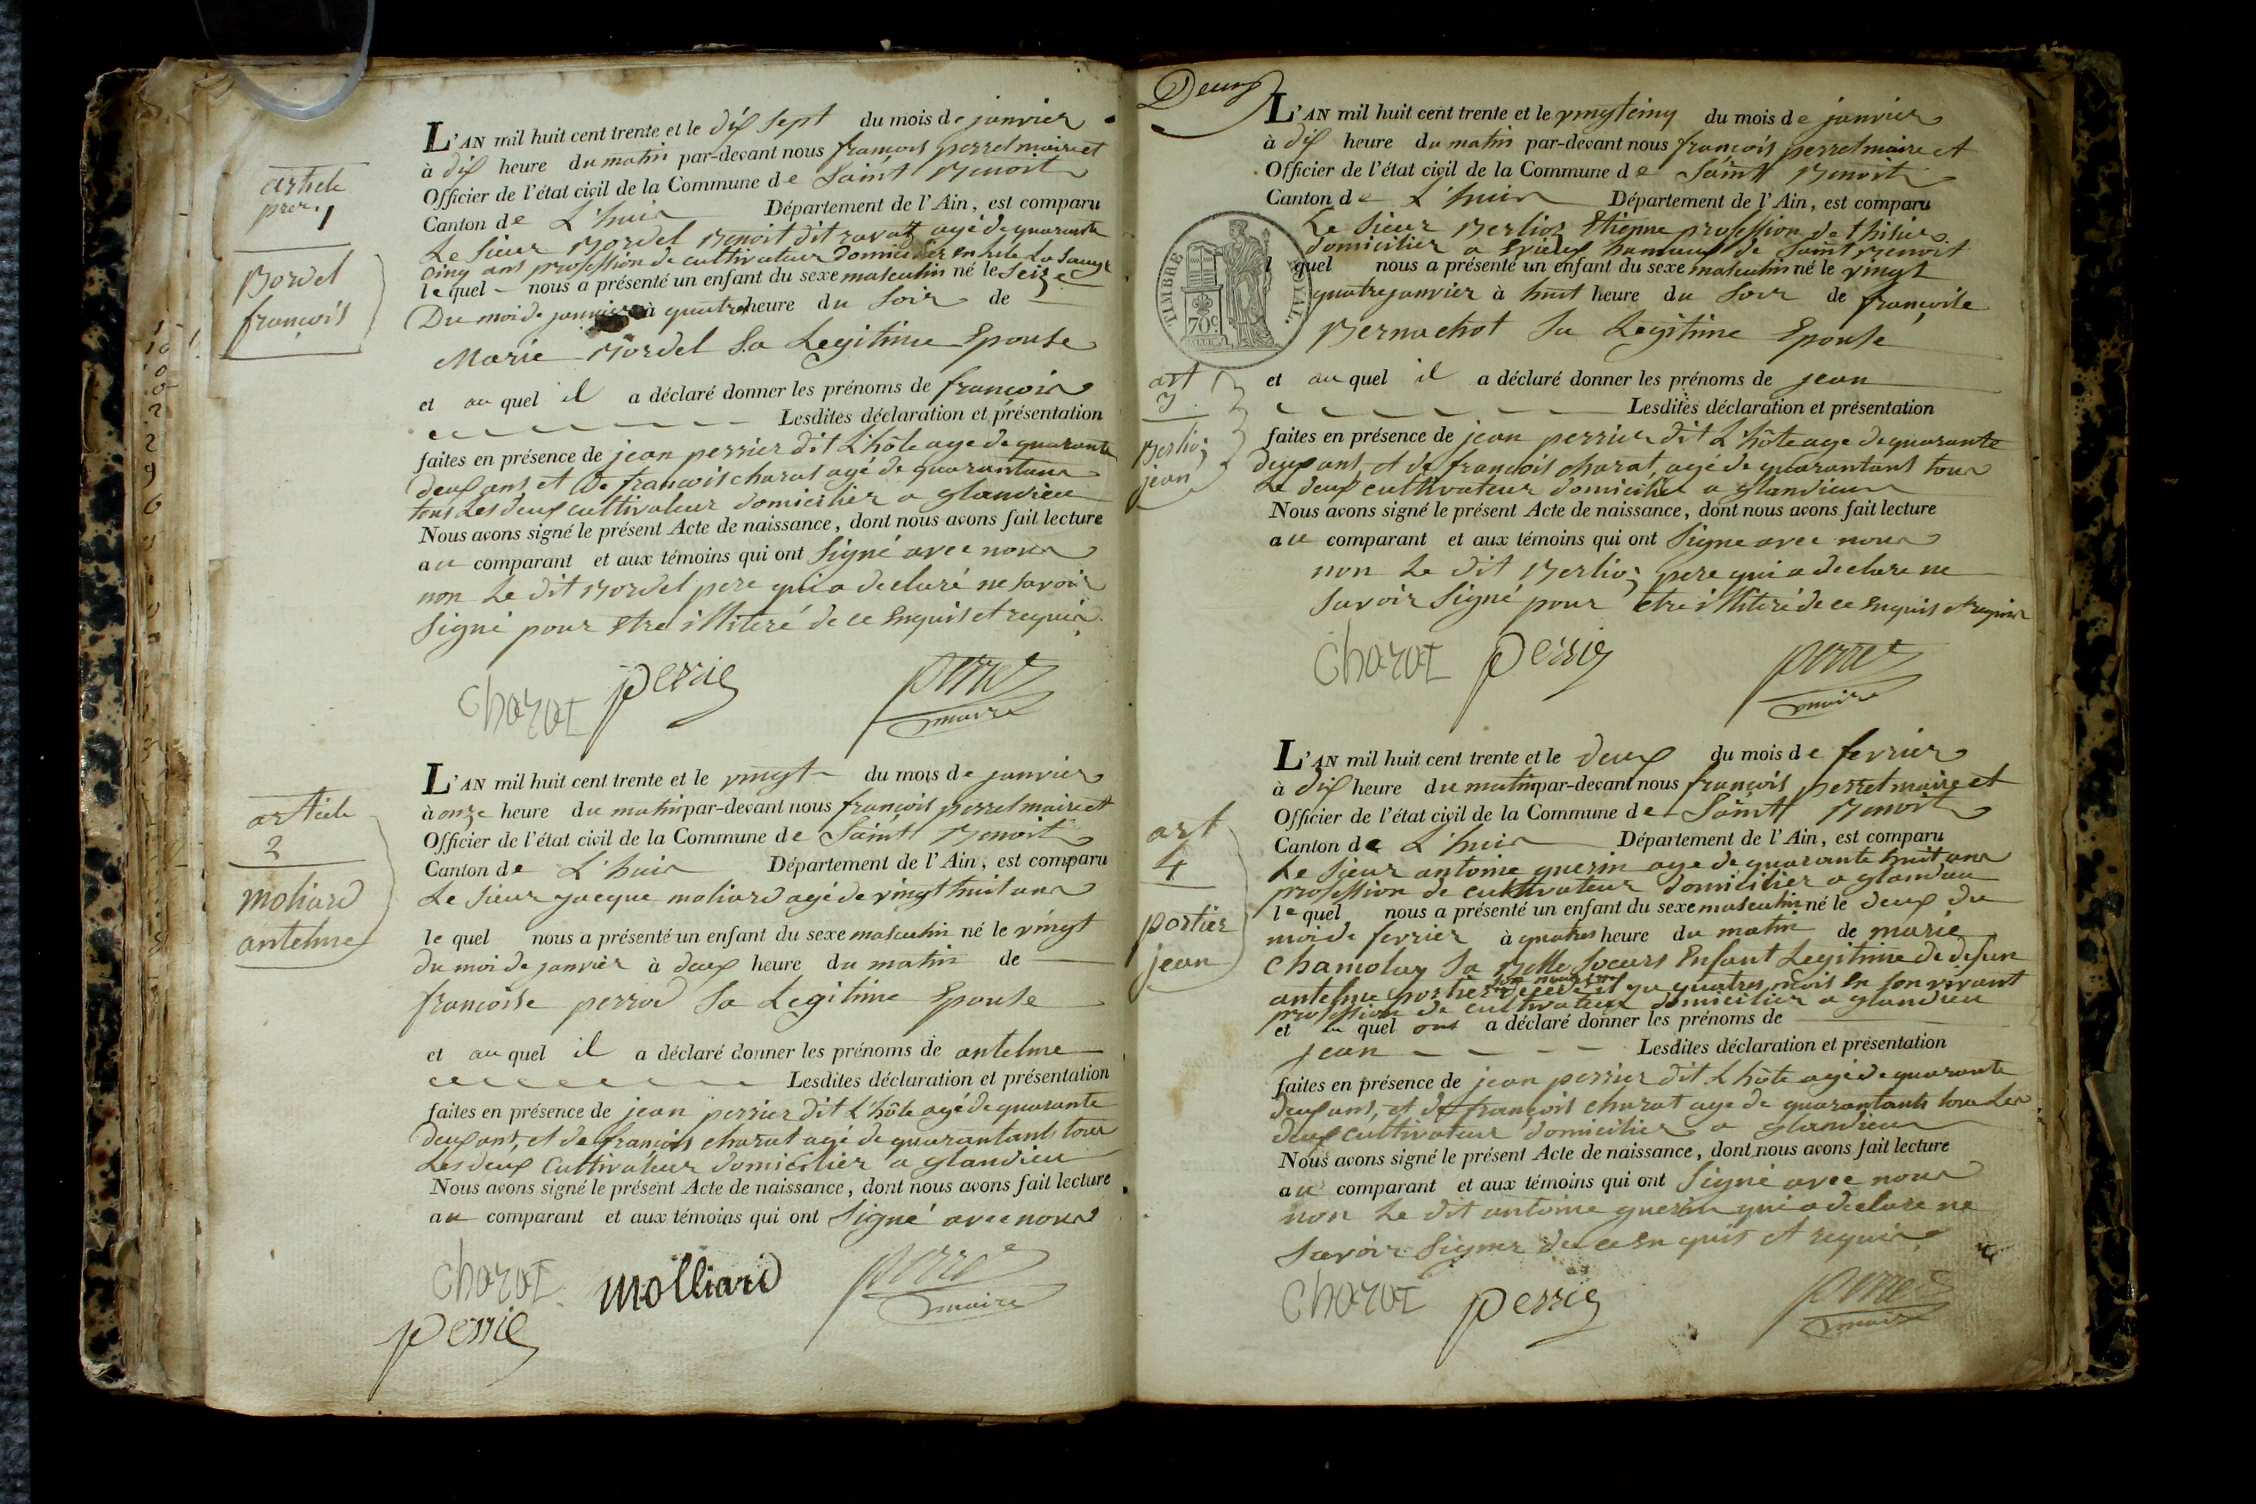 article
prer. 1
Bordel
françois
L'AN mil huit cent trente et le dix sept du mois de janvier
à dix heure du matin par-devant nous françois perret maire et
Officier de l'état civil de la Commune de Saint Benoit
Canton de L'huis Département de l'Ain, est comparu
Le Sieur Bordel Benoit dit ravat agé de quarante
cinq ans profession de cultivateur domicilier
le quel nous a présenté un enfant du sexe masculin né le Seize
Du moi de janvier à quatre heure du Soir de
Marie Bordel Sa Legitime Epouse
et au quel il a déclaré donner les prénoms de françois
Lesdites déclaration et présentation
faites en présence de jean perrier dit L'hôte age de quarante
deux ans et De françois charat agé de quarantans
tous Les deux cultivateur domicilier a glandieu
Nous avons signé le présent Acte de naissance, dont nous avons fait lecture
au comparant et aux témoins qui ont Signé avec nous
non Le dit Bordel pere qui a declaré ne Savoir
Signé pour Etre illiteré de ce Enquis et requis
Charat perrie perret
maire
article
2
moliard
antelme
L'AN mil huit cent trente et le vingt du mois de janvier
à onze heure du matin par-devant nous françois perret maire et
Officier de l'état civil de la Commune de Saint Benoit
Canton de L'huis Département de l'Ain, est comparu
Le Sieur jacque moliard agé de vingt huit ans
le quel nous a présenté un enfant du sexe masculin né le vingt
du moi de janvier à deux heure du matin de
françoise perrod Sa Legitime Epouse
et au quel il a déclaré donner les prénoms de antelme
Lesdites déclaration et présentation
faites en présence de jean perrier dit L'hôte agé de quarante
deux ans, et de françois charat agé de quarantans tous
Les deux Cultivateur domicilier a glandieu
Nous avons signé le présent Acte de naissance, dont nous avons fait lecture
au comparant et aux témoins qui ont Signé avec nous
Charat Molliard perret
perrie maire
Deux
TIMBRE ROYAL.
70c
art
3
Berlioz
jean
L'AN mil huit cent trente et le vingt cinq du mois de janvier
à dix heure du matin par-devant nous françois perret maire et
Officier de l'état civil de la Commune de Saint Benoit
Canton de L'huis Département de l'Ain, est comparu
Le Sieur Berlioz Etienne profession de thisier
domicilier a Evieux hameaux de Saint Benoit
l quel nous a présenté un enfant du sexe masculin né le vingt
quatre janvier à huit heure du Soir de françoise
Bernachot Sa Legitime Epouse
et au quel il a déclaré donner les prénoms de jean
Lesdites déclaration et présentation
faites en présence de jean perrier dit L'hôte age de quarante
deux ans, et de françois charat, agé de quarantans tous
Le deux cultivateur domicilier a glandieu
Nous avons signé le présent Acte de naissance, dont nous avons fait lecture
au comparant et aux témoins qui ont Signe avec nous
non Le dit Berlioz pere qui a declare ne
Savoir Signé pour etre illiteré de ce Enquis et requis
Charat perrie perret
maire
art
4
portier
jean
L'AN mil huit cent trente et le deux du mois de fevrier
à dix heure du matin par-devant nous françois perret maire et
Officier de l'état civil de la Commune de Saint Benoit
Canton de L'huis Département de l'Ain, est comparu
Le Sieur antoine guerin age de quarante huit ans
profession de cultivateur domicilier a glandieu
le quel nous a présenté un enfant du sexe masculin né le deux du
moi de fevrier à quatres heure du matin de marie
Chamolay Sa Belle Soeurs Enfant Legitime de defun
antelme portier décédé il ya quatres mois En Son vivant
profession de cultivateur domicilier a glandieu
et au quel ont a déclaré donner les prénoms de
jean Lesdites déclaration et présentation
faites en présence de jean perrier dit L'hôte agé de quarante
deux ans, et de françois charat age de quarantans tous Les
deux cultivateur domicilier a glandieu
Nous avons signé le présent Acte de naissance, dont nous avons fait lecture
au comparant et aux témoins qui ont Signé avec nous
non Le dit antoine guerin qui a declare ne
Savoir Signer de ce En quis et requis
Charat perrie perret
maire